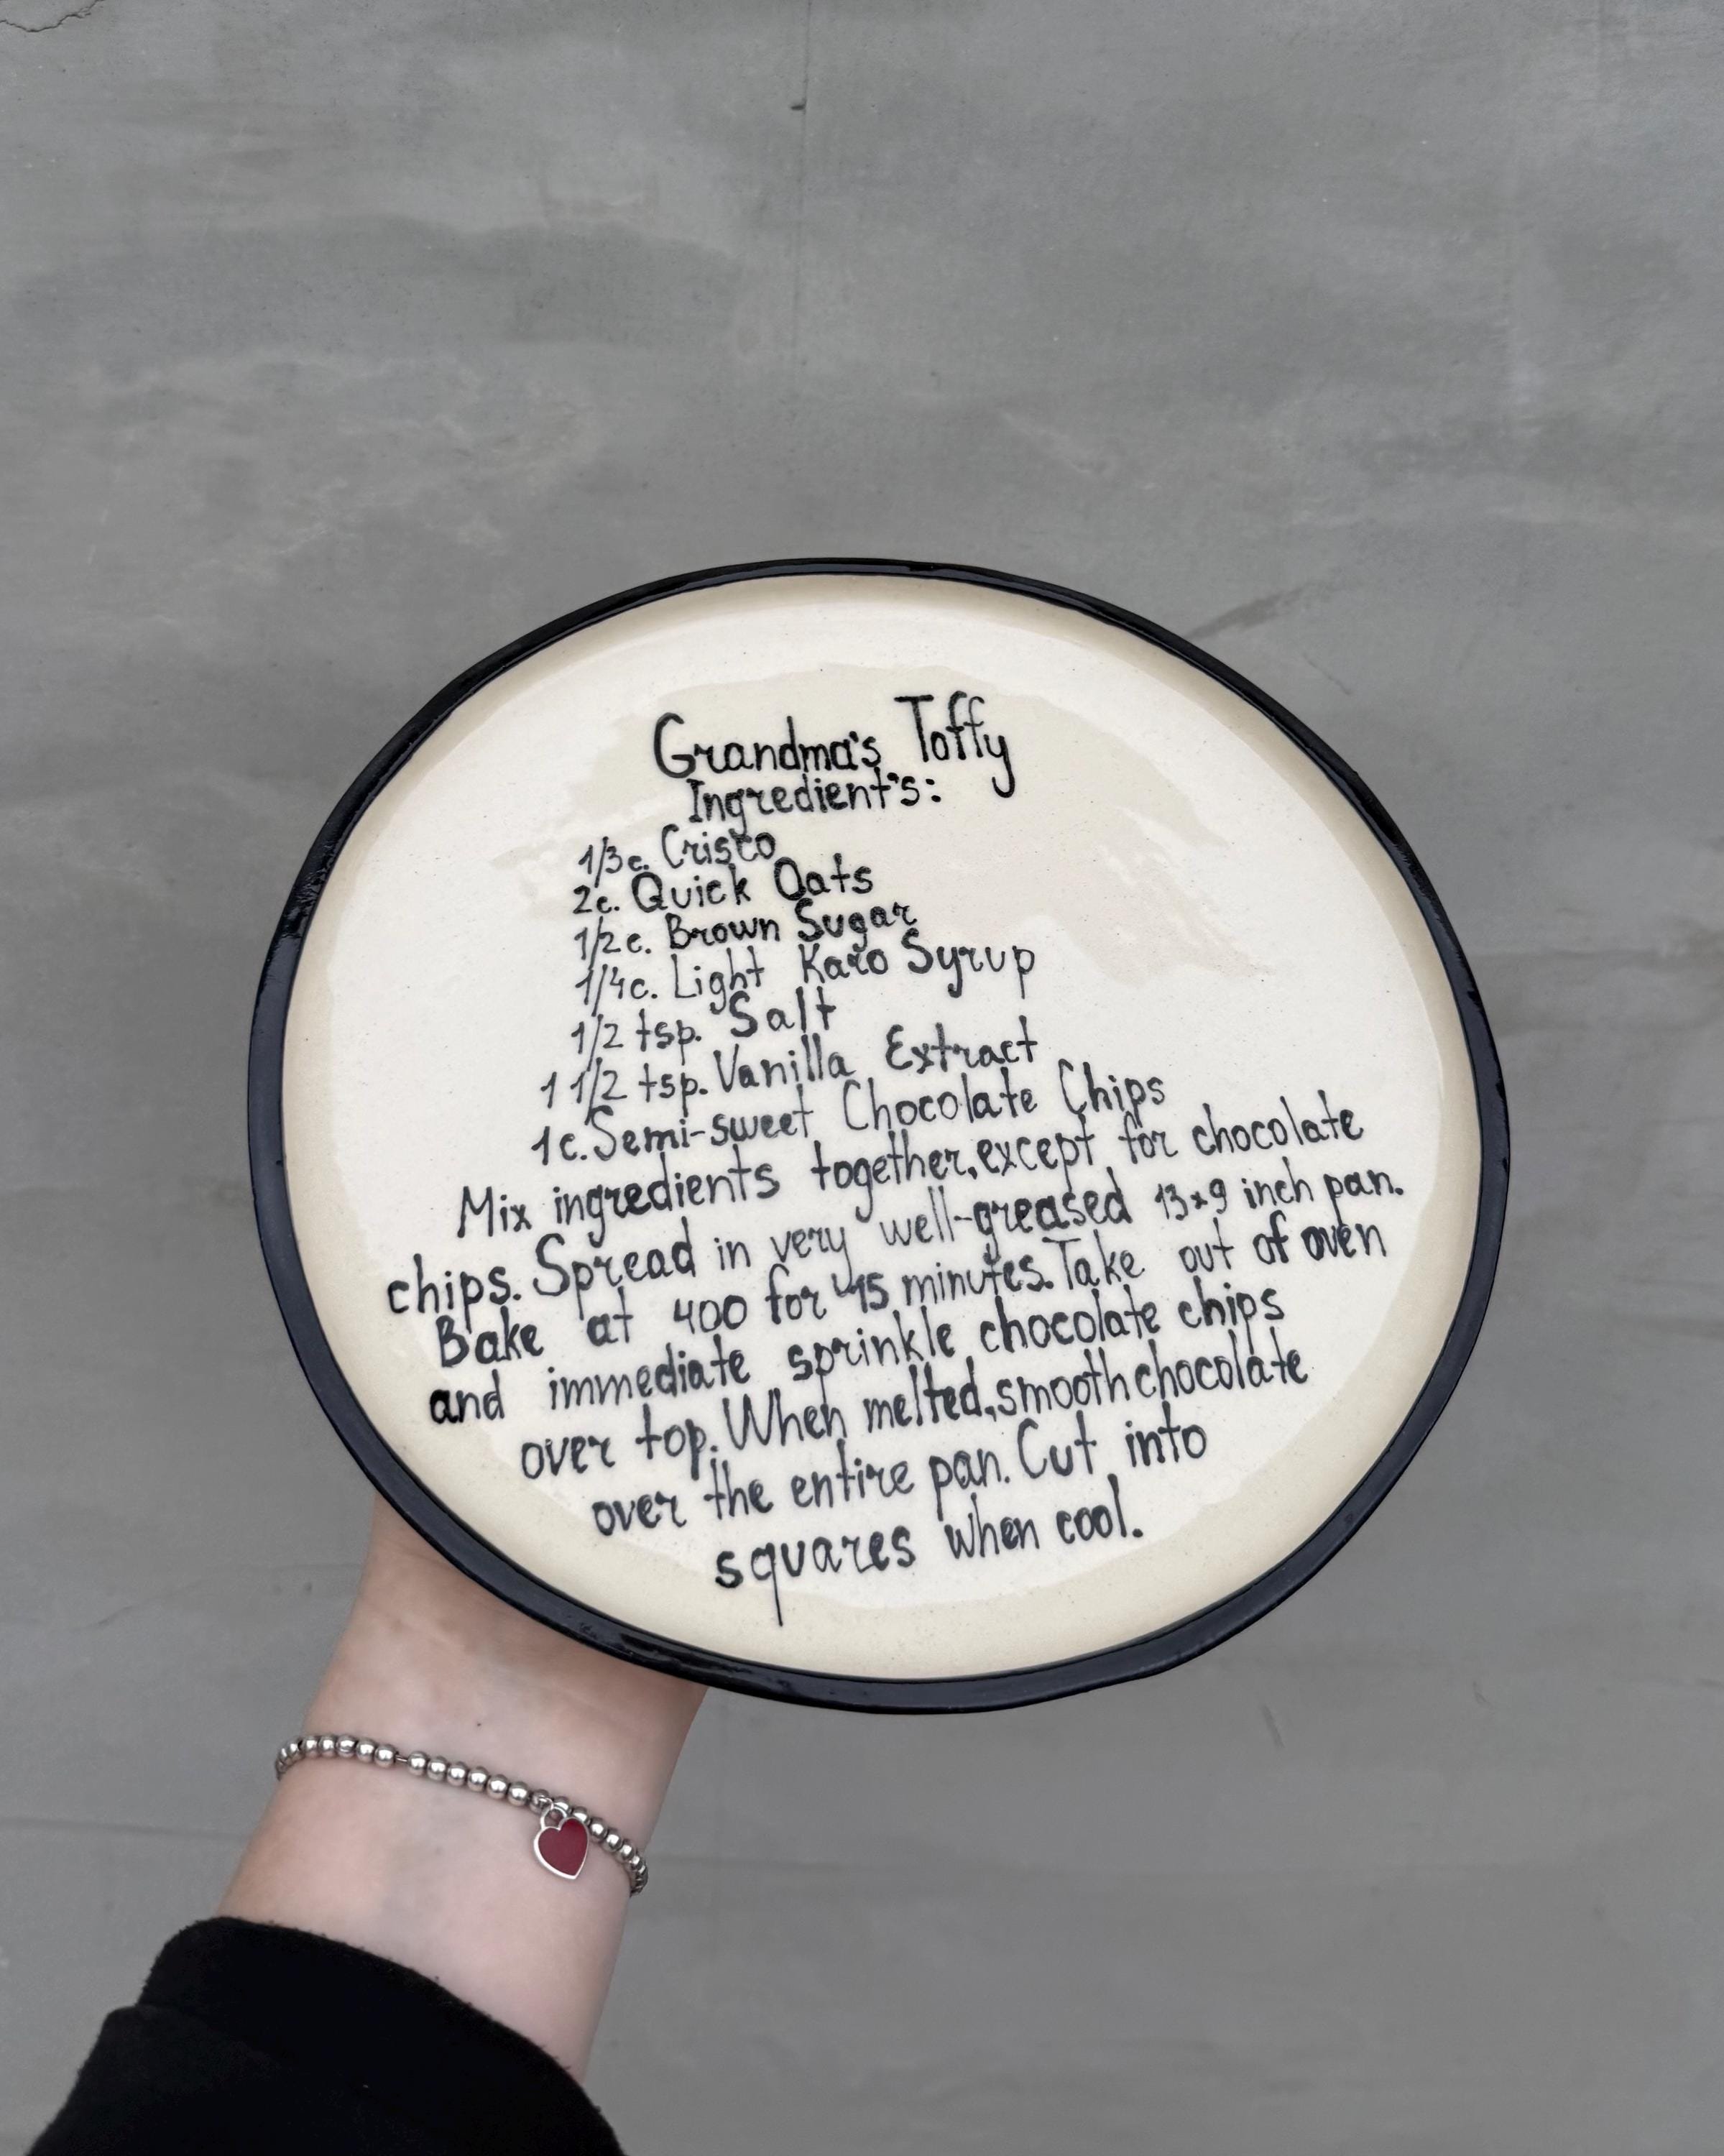 Grandma's Toffy
Ingredient's:
1/3c. Crisco
2c. Quick Oats
1/2c. Brown Sugar
1/4c. Light Karo Syrup
1/2 tsp. Salt
1 1/2 tsp. Vanilla Extract
1c. Semi-sweet Chocolate Chips
Mix ingredients together, except for chocolate
chips. Spread in very well-greased 13x9 inch pan.
Bake at 400 for 15 minutes. Take out of oven
and immediate sprinkle chocolate chips
over top. When melted, smooth chocolate
over the entire pan. Cut into
squares when cool.